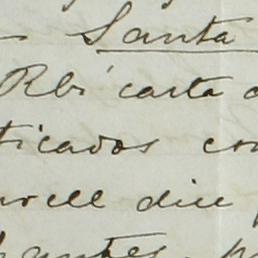 Santa
Rbí carta
ticados con
well dice